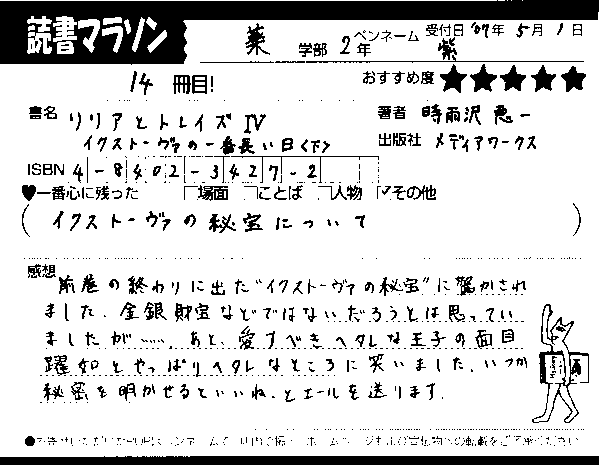 読書マラソン
薬 学部 2年 ペンネーム 紫 受付日 '07年 5月 1日
14 冊目! おすすめ度 ★★★★★
書名 リリアとトレイズ Ⅳ
イクストーヴァの一番長い日〈下〉
著者 時雨沢 恵一
出版社 メディアワークス
ISBN 4-8402-3427-2
♥一番心に残った □場面 □ことば □人物 ☑その他
(イクストーヴァの秘宝について)
感想 前巻の終わりに出た"イクストーヴァの秘宝"に驚かされ
ました。金銀財宝などではないだろうとは思ってい
ましたが……。あと、愛すべきヘタレな王子の面目
躍如とやっぱりヘタレなところに笑いました。いつか
秘密を明かせるといいね、とエールを送ります。